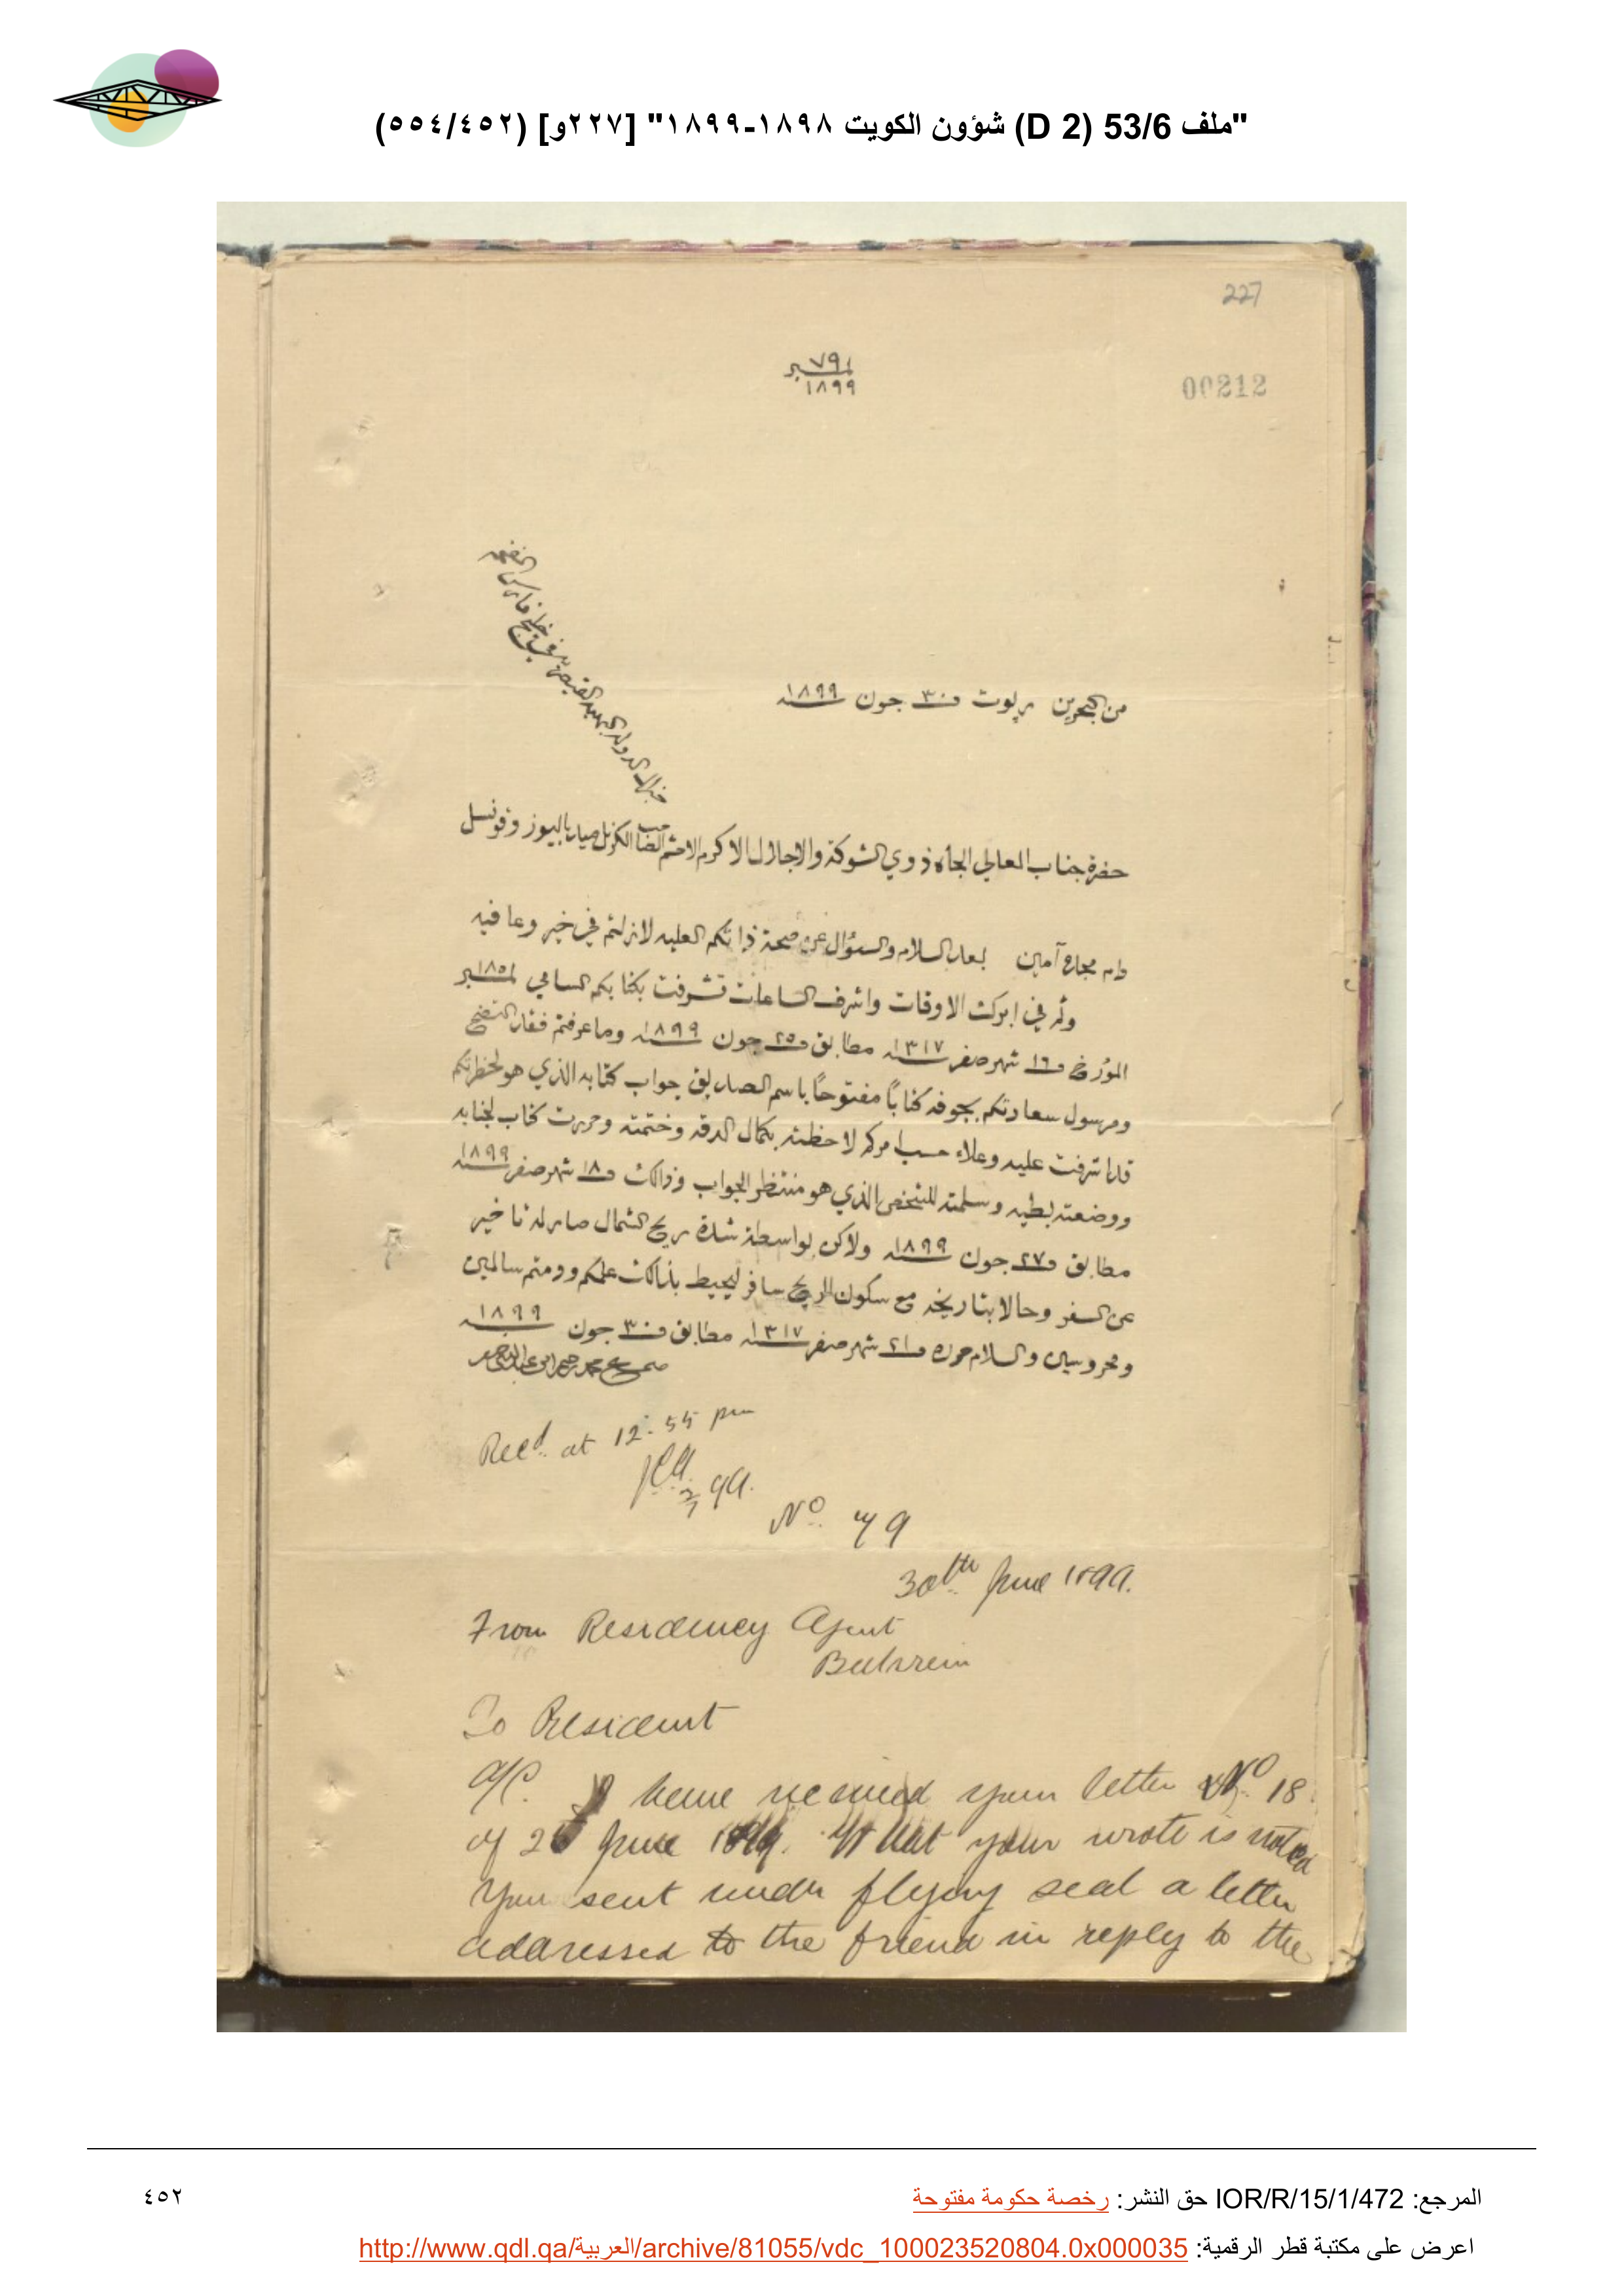 "ملف 53/6 (D 2) شؤون الكويت ١٨٩٨-١٨٩٩" [٢٢٧و] (٥٥٤/٤٥٢)
227
نمبر ٧٩
١٨٩٩
00212
من البحرين بريوت ف ٣٠ جون سنه ١٨٩٩
حضرة جناب العالي الجاه ذوي الشوكة والاجلال الاكرم الاحشم الصاحب الكرنل ميد باليوز وقونسل
جنرال الدوله البهيه القيصريه في خليج فارس المفخم
دام مجده آمين بعد السلام والسؤال عن صحة ذاتكم العليه لازلتم في خير وعافيه
وثم في ابرك الاوقات واشرف الساعات تشرفت بكتابكم السامي نمبر ١٨٥
المؤرخ ف ١٦ شهر صفر سنه ١٣١٧ مطابق ف ٢٥ جون سنه ١٨٩٩ وما عرفتم فقد اتضح
ومرسول سعادتكم بجوفه كتابًا مفتوحًا باسم الصديق جواب كتابه الذي هو لحضرتكم
قد اشرفت عليه وعلاء حسب امركم لاحظته بكمال الدقه وختمته وحررت كتاب لجنابه
ووضعته بطيه وسلمته للشخص الذي هو منتظر الجواب وذالك ف ١٨ شهر صفر سنه ١٨٩٩
مطابق ف ٢٧ جون سنه ١٨٩٩ ولاكن بواسطة شدة ريح الشمال صار له تاخير
عن السفر وحالا بتاريخه مع سكون الريح سافر ليحيط بذالك علمكم ودمتم سالمين
ومحروسين والسلام حرره ف ٢١ شهر صفر سنه ١٣١٧ مطابق ف ٣٠ جون سنه ١٨٩٩
صحيح محمد رحيم ابن عبد النبي صفر
Recd. at 12.55 pm
2/7 99.
No. 79
30th June 1899.
From Residency Agent
Bahrein
To Resident
A/C. I have received your letter No. 18
of 25 June 1899. What you wrote is noted
You sent under flying seal a letter
addressed to the friend in reply to the
المرجع: IOR/R/15/1/472 حق النشر: رخصة حكومة مفتوحة
٤٥٢
اعرض على مكتبة قطر الرقمية: http://www.qdl.qa/العربية/archive/81055/vdc_100023520804.0x000035